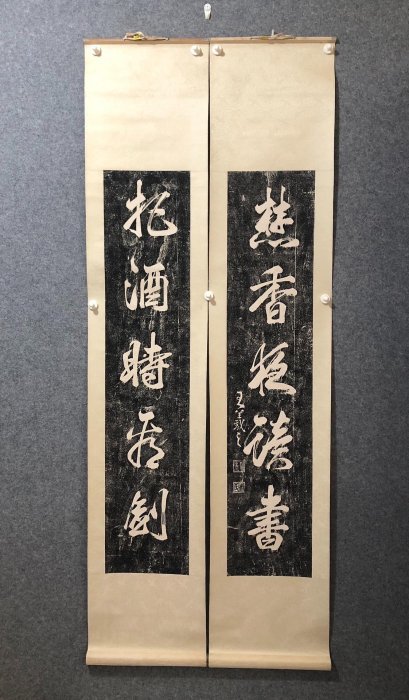 焚香夜讀書
王羲之
把酒時看劍